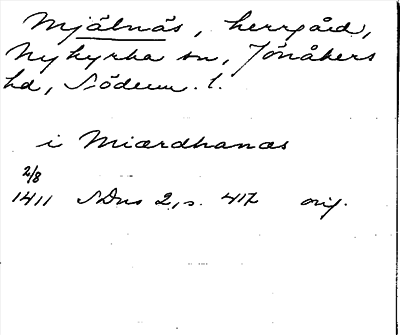 Mjälnäs, herrgård,
Nykyrka sn, Jönåkers
hd, Söderm. l.
i Miærdhanæs
2/8
1411 SDns 2, s. 417 orig.